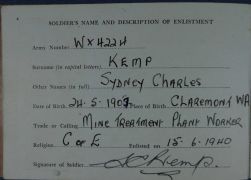 SOLDIER'S NAME AND DESCRIPTION OF ENLISTMENT
Army Number WX4224
Surname (in capital letters) KEMP
Other Names (in full) SYDNEY CHARLES
Date of Birth 24.5.1907 Place of Birth CLAREMONT WA
Trade or Calling MINE TREATMENT PLANT WORKER
Religion C of E Enlisted on 15-6-1940
Signature of Soldier SCKemp.